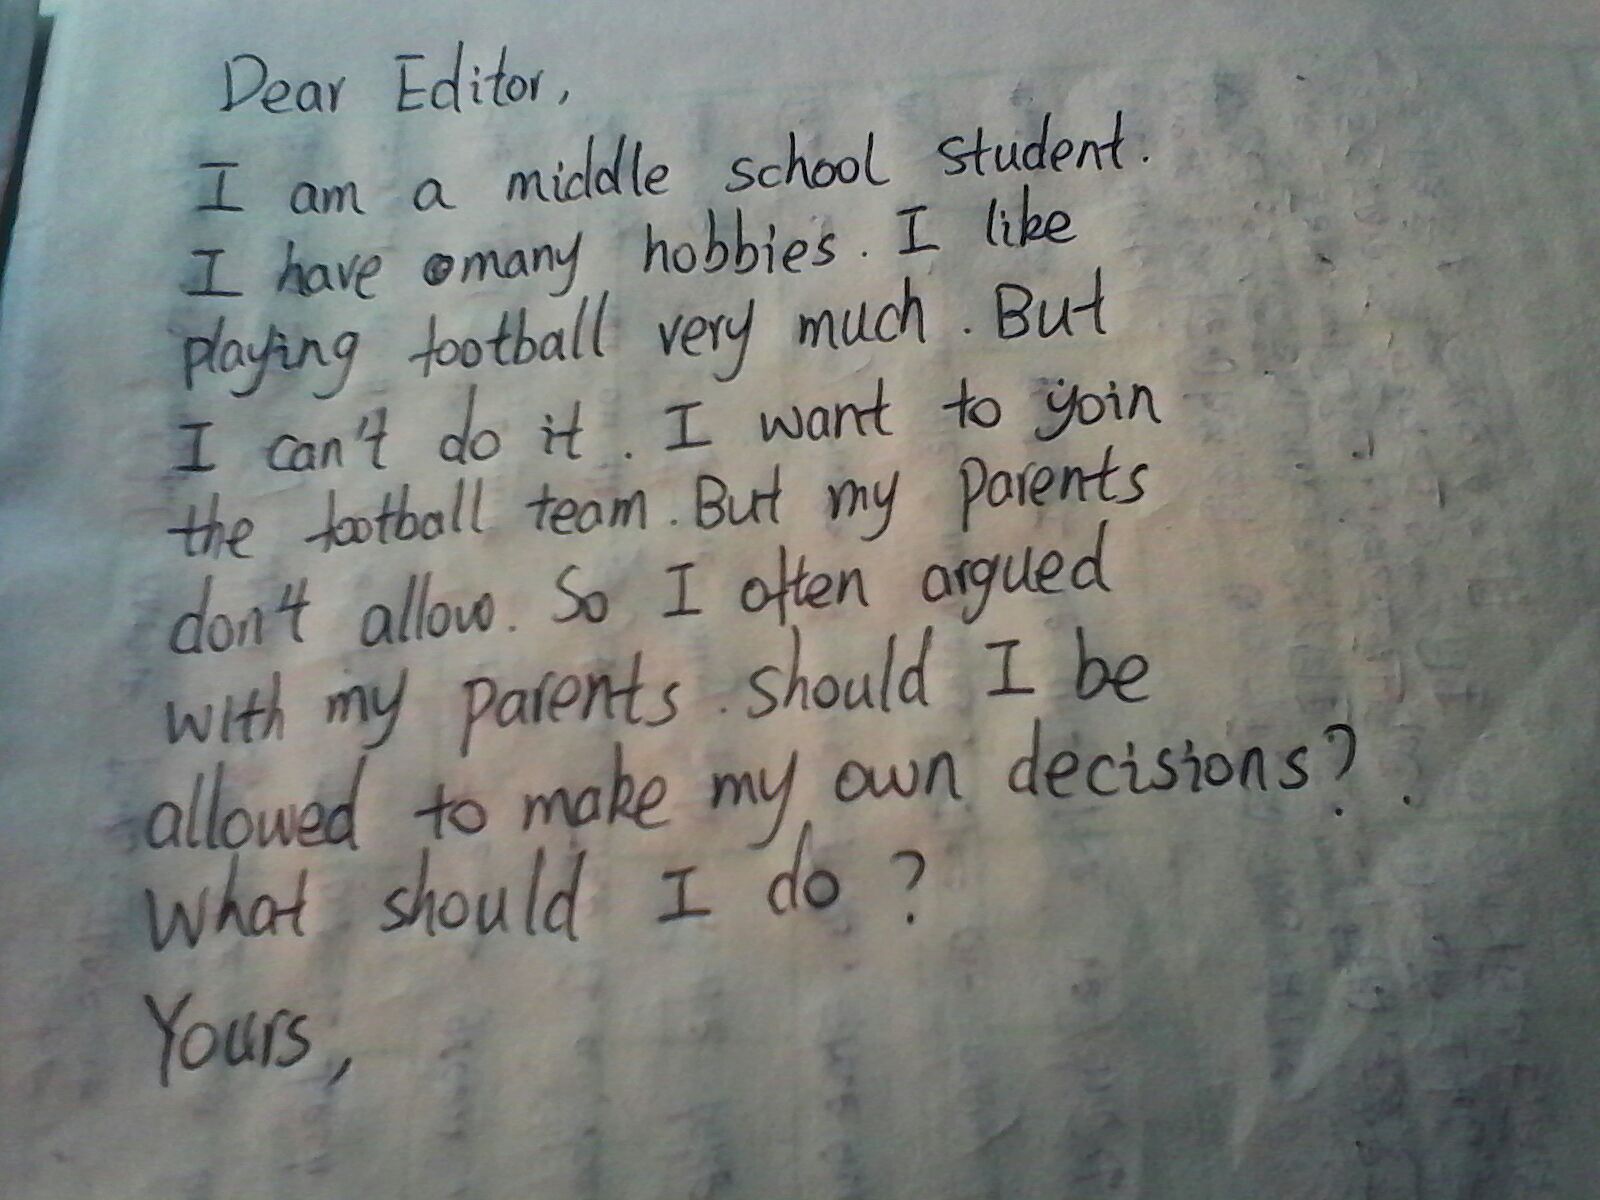 Dear Editor,
I am a middle school student.
I have many hobbies. I like
playing football very much. But
I can't do it. I want to yoin
the football team. But my parents
don't allow. So I often argued
with my parents. should I be
allowed to make my own decisions?
What should I do?
Yours,